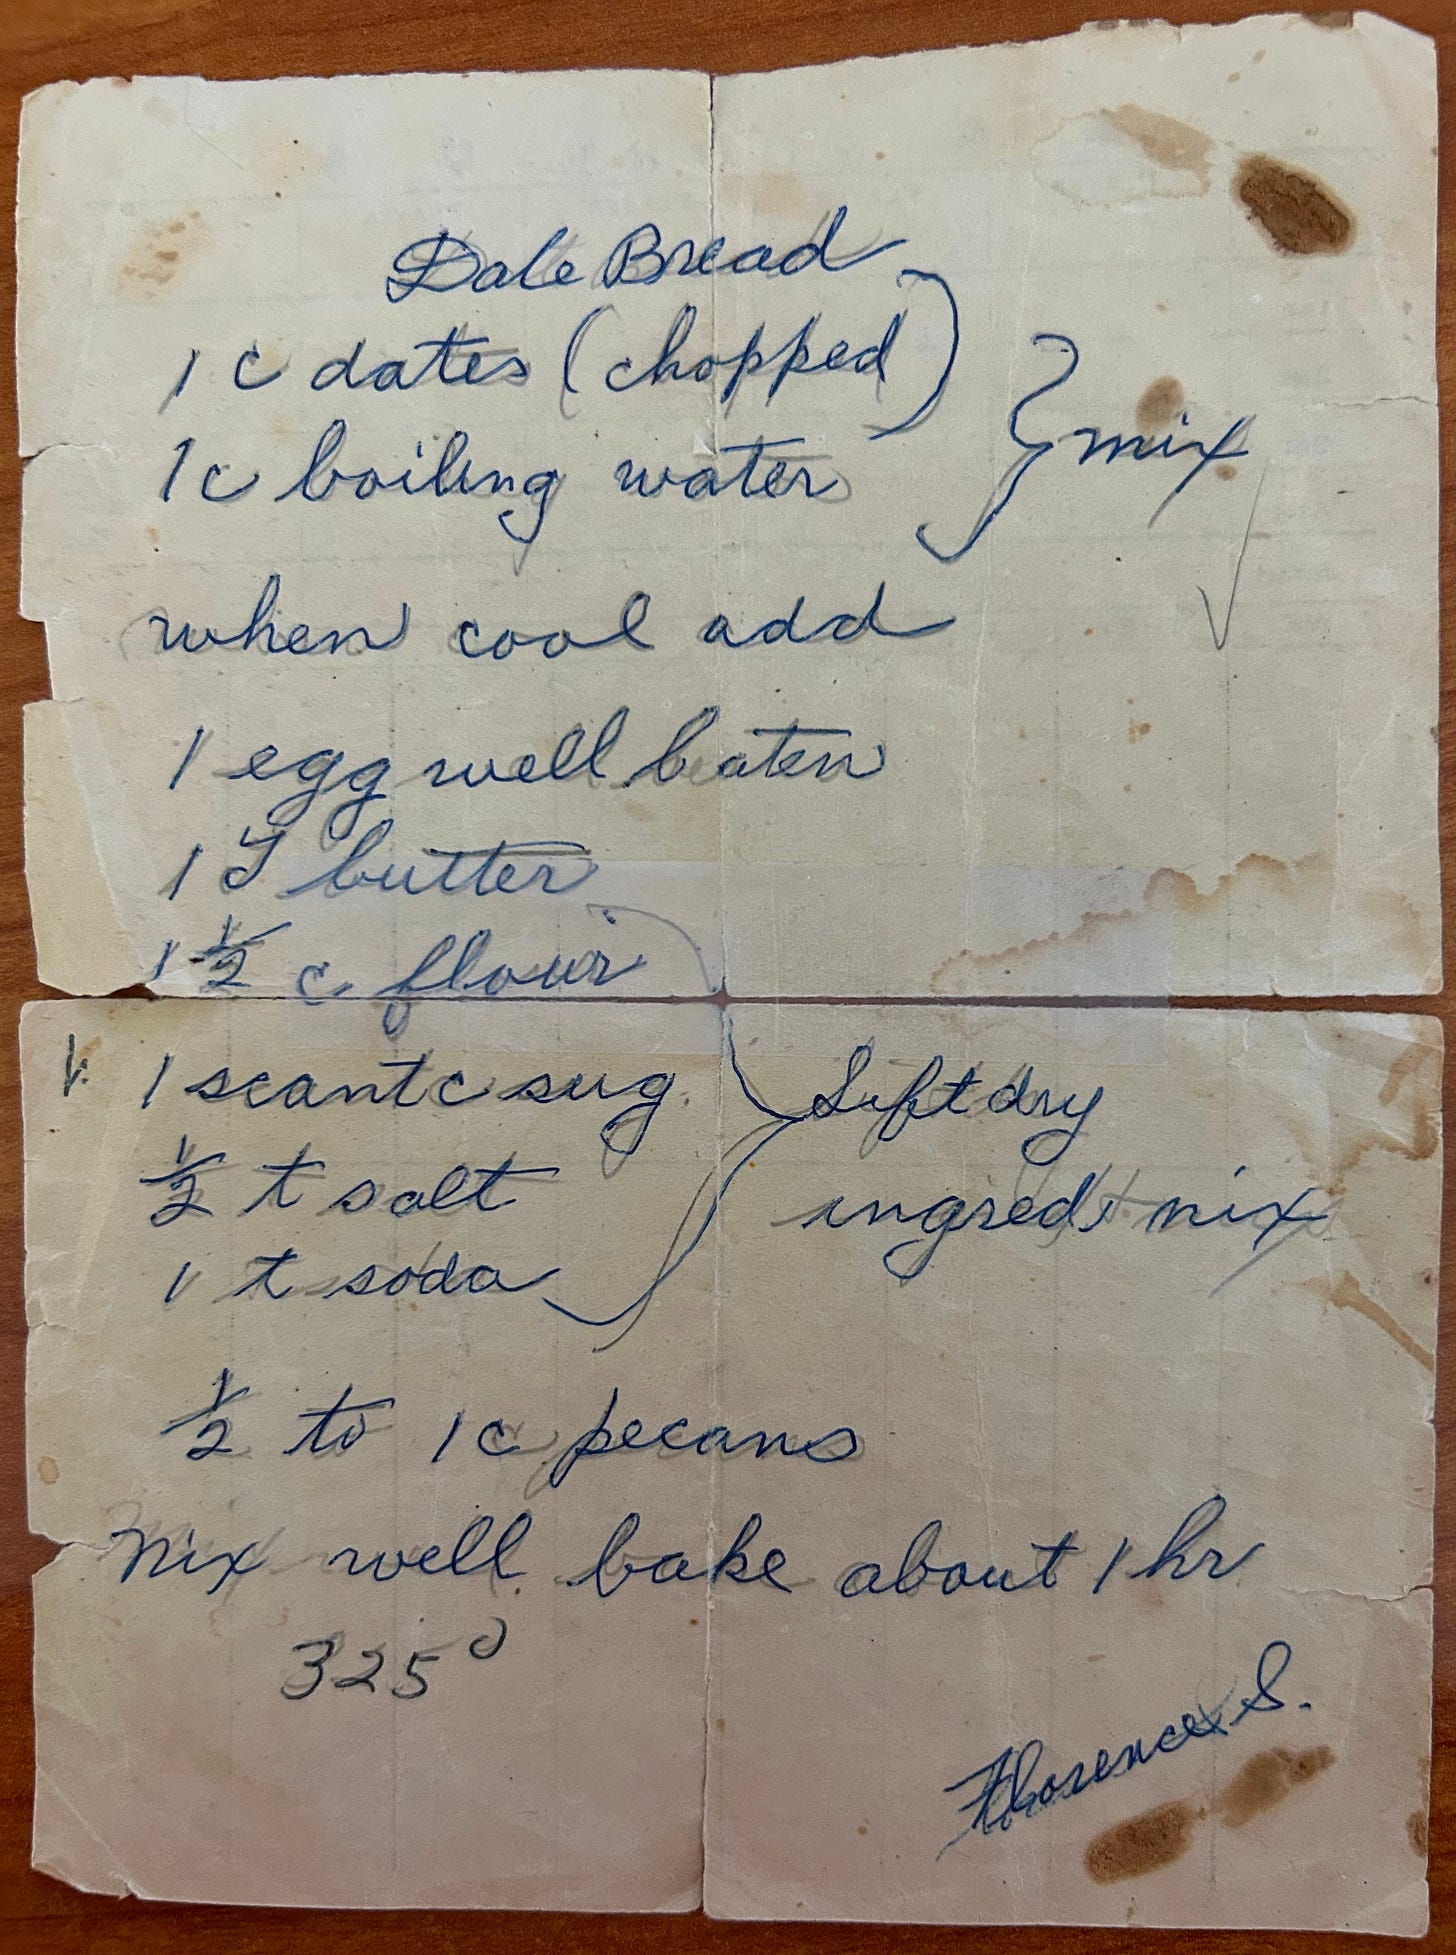 Date Bread
1 c dates (chopped)
1c boiling water } mix
when cool add
1 egg well beaten
1 T butter
1 1/2 c. flour
1 scant c sug.
1/2 t salt
1 t soda
} Sift dry
ingred + mix
1/2 to 1 c pecans
Mix well bake about 1 hr
325°
Florence S.